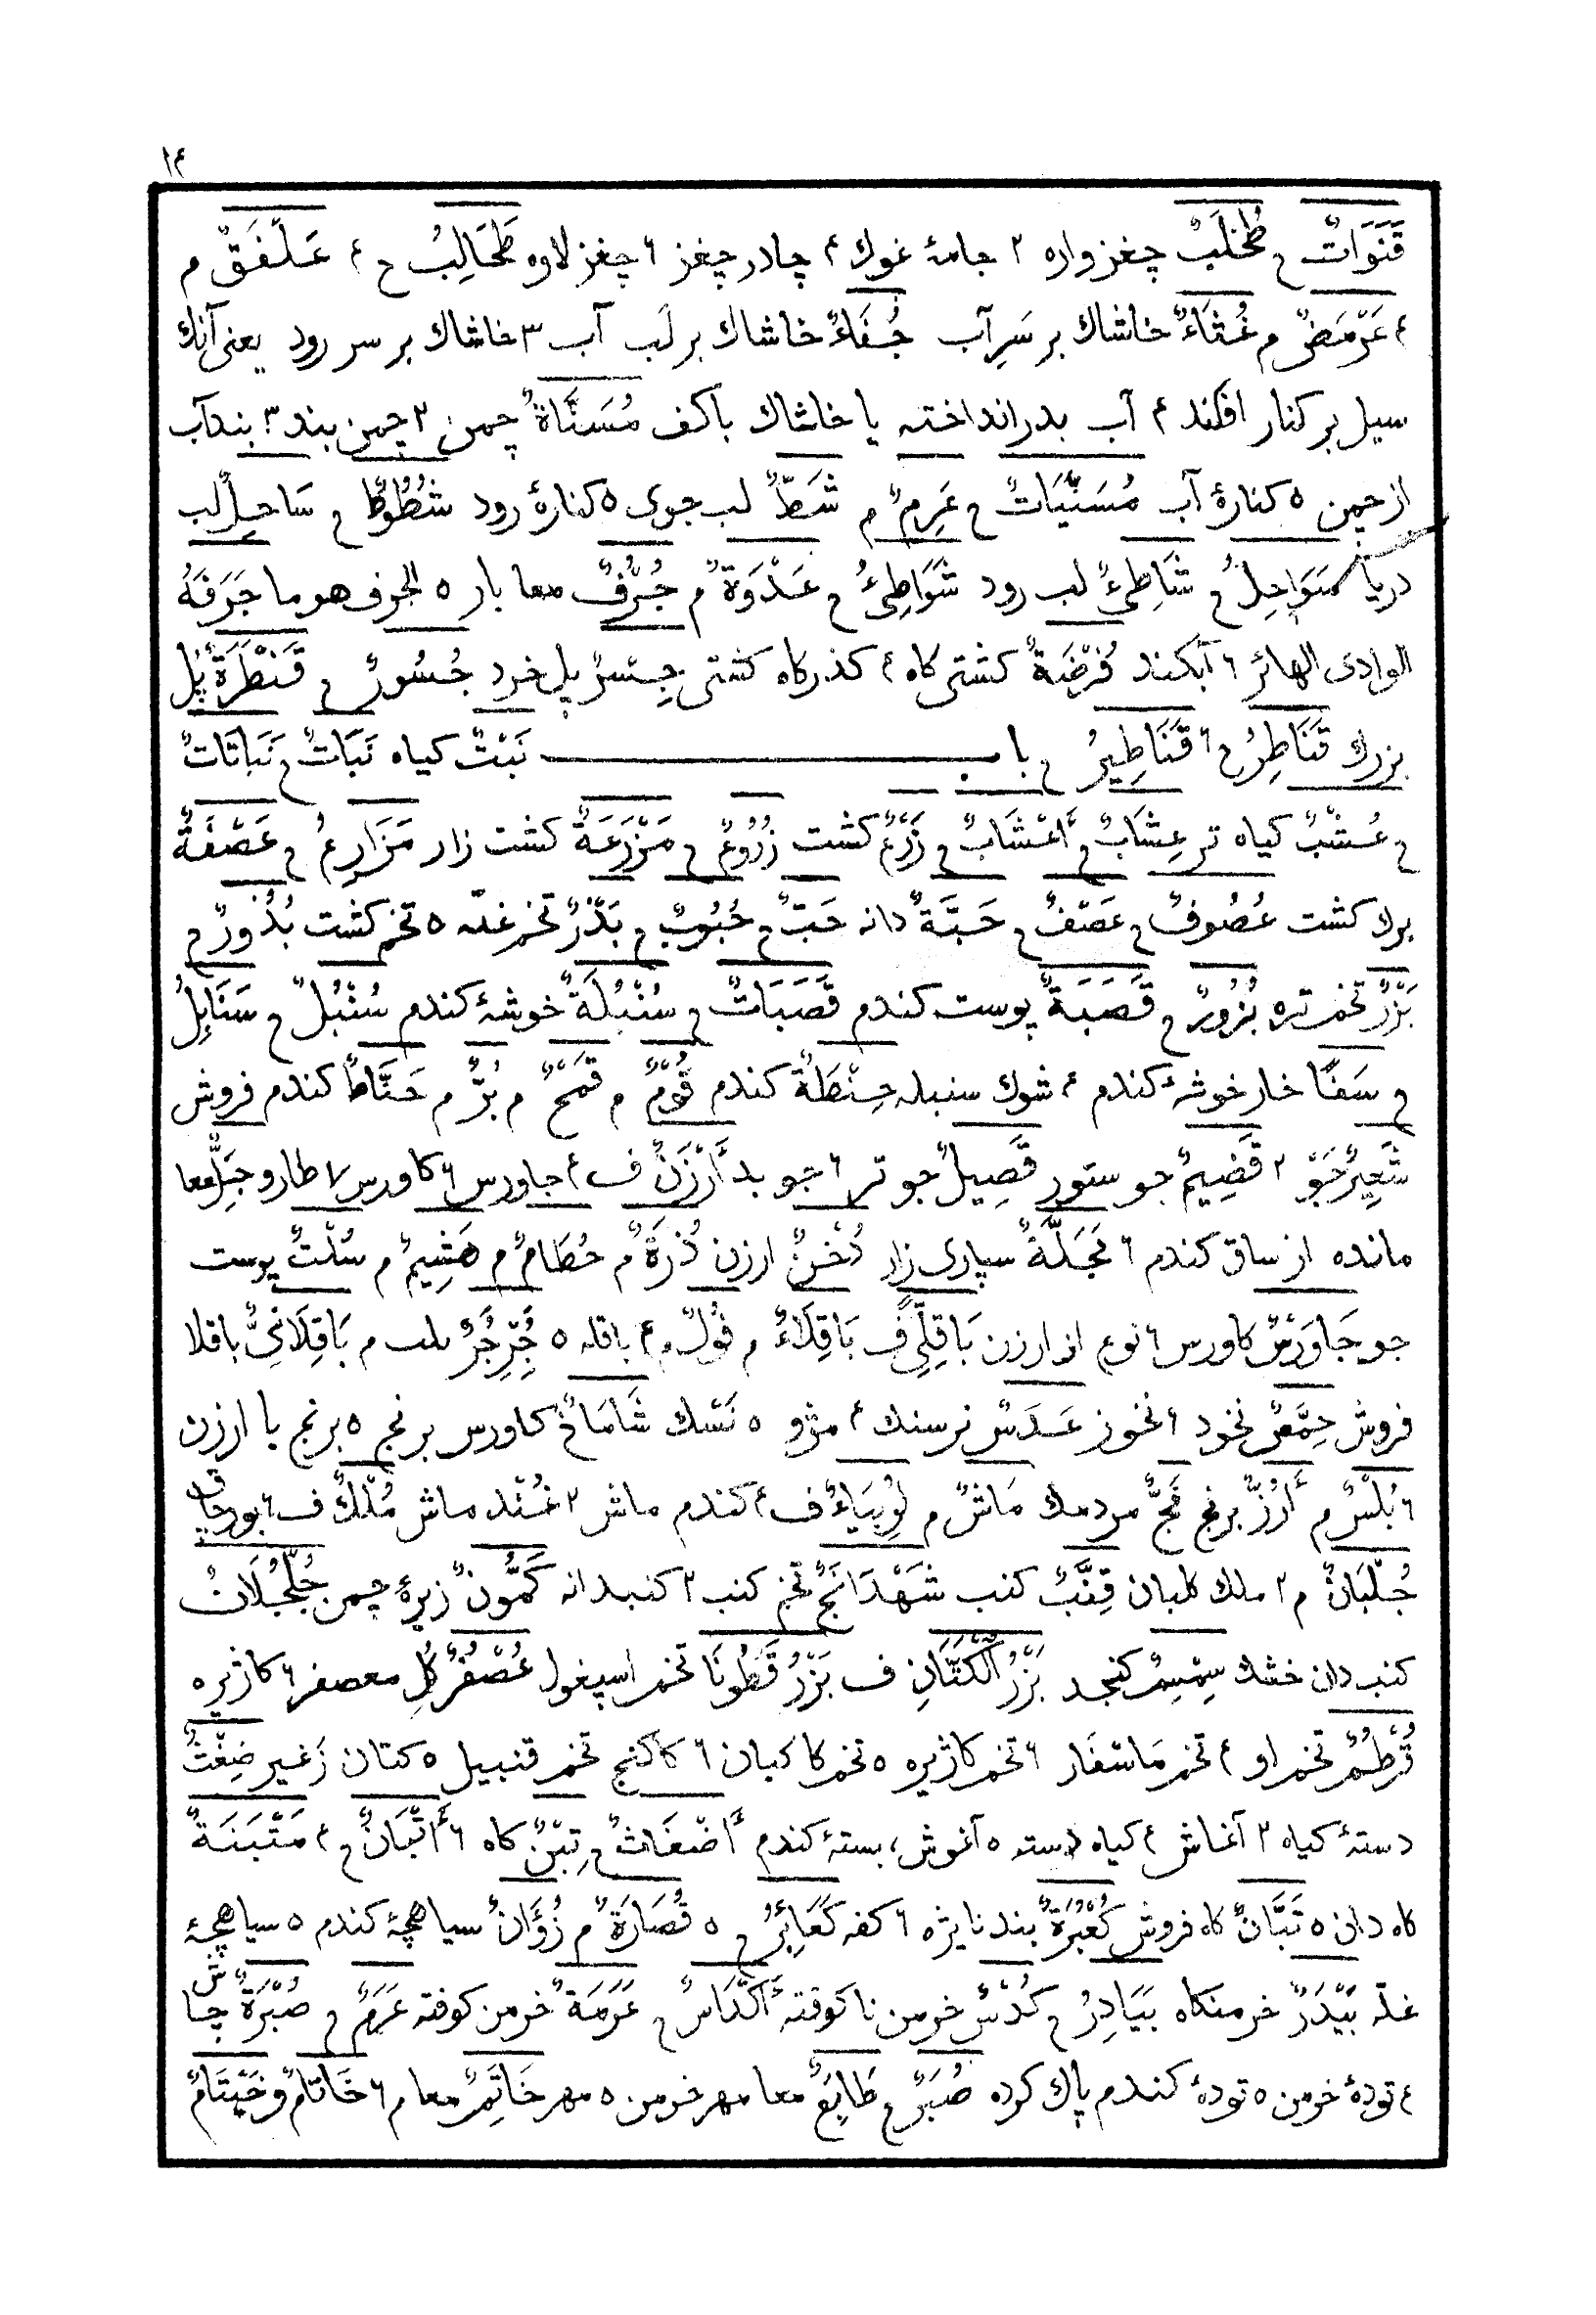 ١٤
قَنَوَاتٌ ج طُحْلَبٌ چغزواره ٢ جامهٔ غوك ۴ چادر چغز ٦ چغزلاوه طَحَالِبُ ج ۴ عَلْفَقٌ م
۴ عَرْمَضٌ م غُثَاءٌ خاشاك بر سَرِ آب جُفَاءٌ خاشاك بر لَب آب ٣ خاشاك بر سر رود يعنى آنك
سيل بر كنار افكند ۴ آب بدر انداخته يا خاشاك با كف مُسَنَّاةٌ چمن ٢ چمن بند ٣ بند آب
از چمن ٥ كنارهٔ آب مُسَنَّيَاتٌ ج عَرِمٌ م شَطٌّ لب جوى ٥ كنارهٔ رود شُطُوطٌ ج سَاحِلٌ لب
دريا سَوَاحِلُ ج شَاطِئٌ لب رود شَوَاطِئُ ج عَدْوَةٌ م جُرْفٌ معا بار ٥ الجرف هو ما جَرَفَهُ
الوادى الهائر ٦ آبكند فُرْضَةٌ كشتى كاه ۴ كذركاه كشتى جِسْرٌ پل خرد جُسُورٌ ج قَنْطَرَةٌ پُل
بزرك قَنَاطِرُ ج ٦ قَنَاطِيرُ ج باب نَبْتٌ كياه نَبَاتٌ ج نَبَاتَاتٌ
ج عُشْبٌ كياه تر عِشَابٌ ج أَعْشَابٌ ج زَرْعٌ كشت زُرُوعٌ ج مَزْرَعَةٌ كشت زار مَزَارِعُ ج عَصْفَةٌ
برك كشت عُصُوفٌ ج عَصْفٌ ج حَبَّةٌ دانه حَبٌّ ج حُبُوبٌ ج بَذْرٌ تخم غلّه ٥ تخم كشت بُذُورٌ ج
بَزْرٌ تخم تره بُزُورٌ ج قَصَبَةٌ پوست كندم قَصَبَاتٌ ج سُنْبُلَةٌ خوشهٔ كندم سُنْبُلٌ ج سَنَابِلُ
ج سَفًا خار خوشهٔ كندم ۴ شوك سنبله حِنْطَةٌ كندم فُومٌ م قَمْحٌ م بُرٌّ م حَنَّاطٌ كندم فروش
شَعِيرٌ جَوْ ٢ قَضِيمٌ جو ستور قَصِيلٌ جو تر ٦ جو بد أَرْزَنٌ ف ۴ جاورس ٦ كاورس ٧ طارو جِلٌّ معا
مانده از ساق كندم ٦ مَجَلَّةٌ سپارى زار دُخْنٌ ارزن ذُرَةٌ م حُطَامٌ م هَشِيمٌ م سُلْتٌ پوست
جو جَاوَرْسٌ كاورس ٦ نوع از ارزن بَاقِلِّى ف بَاقِلَاءٌ م فُولٌ م ۴ باقله ٥ جِرْجِرٌ م بَاقِلَانِىٌّ باقلا
فروش حِمَّصٌ نخود ٦ نخوز عَدَسٌ نرسنك ۴ مژو ٥ نَسْك شَامَاخٌ كاورس برنج ٥ برنج با ارزن
٦ بُلْسٌ م أَرُزٌّ برنج مَجٌّ مردمك مَاشٌ م لُوبِيَاءٌ ف ۴ كندم ماش ٢ غُنْد ماش مُلْكٌ ف ٦ بورجاق
جُلْبَانٌ م ٢ ملك كلبان قِنَّبٌ كنب شَهْدَانَجٌ تخم كنب ٢ كنبدانه كَمُّونٌ زيرهٔ چمن جُلْجُلَانٌ
كنب دان خشك سِمْسِمٌ كنجد بَزْرُ الْكَتَّانِ ف بَزْرُ قَطُونَا تخم اسپغول عُصْفُرٌ كُل معصفر ٦ كاژيره
قُرْطُمٌ تخم او ۴ تخم مَاسْفَار ٦ تخم كاژيره ٥ تخم كاكبان ٦ كاكنج تخم قنبيل ٥ كتان زَغير ضِغْثٌ
دستهٔ كياه ٢ آغاش ۴ كياه دسته ٥ آغوش، بستهٔ كندم أَضْغَاثٌ ج تِبْنٌ كاه ٦ أَتْبَانٌ ج ۴ مَتْبَنَةٌ
كاه دان ٥ تَبَّانٌ كاه فروش كُعْبُرَةٌ بند نايژه ٦ كفه كَعَابِرُ ج ٥ قُصَارَةٌ م زُؤَانٌ سياهچهٔ كندم ٥ سياهچهٔ
غلّه بَيْدَرٌ خرمنكاه بَيَادِرُ ج كُدْسٌ خرمن ناكوفته أَكْدَاسٌ ج عَرَمَةٌ خرمن كوفته عَرَمٌ ج صُبْرَةٌ چاش
۴ تودهٔ خرمن ٥ تودهٔ كندم پاك كرده صُبَرٌ ج طَابِعٌ معا مهر خرمن ٥ مهر خَاتِمٌ معا م ٦ خَاتَامٌ و خَيْتَامٌ